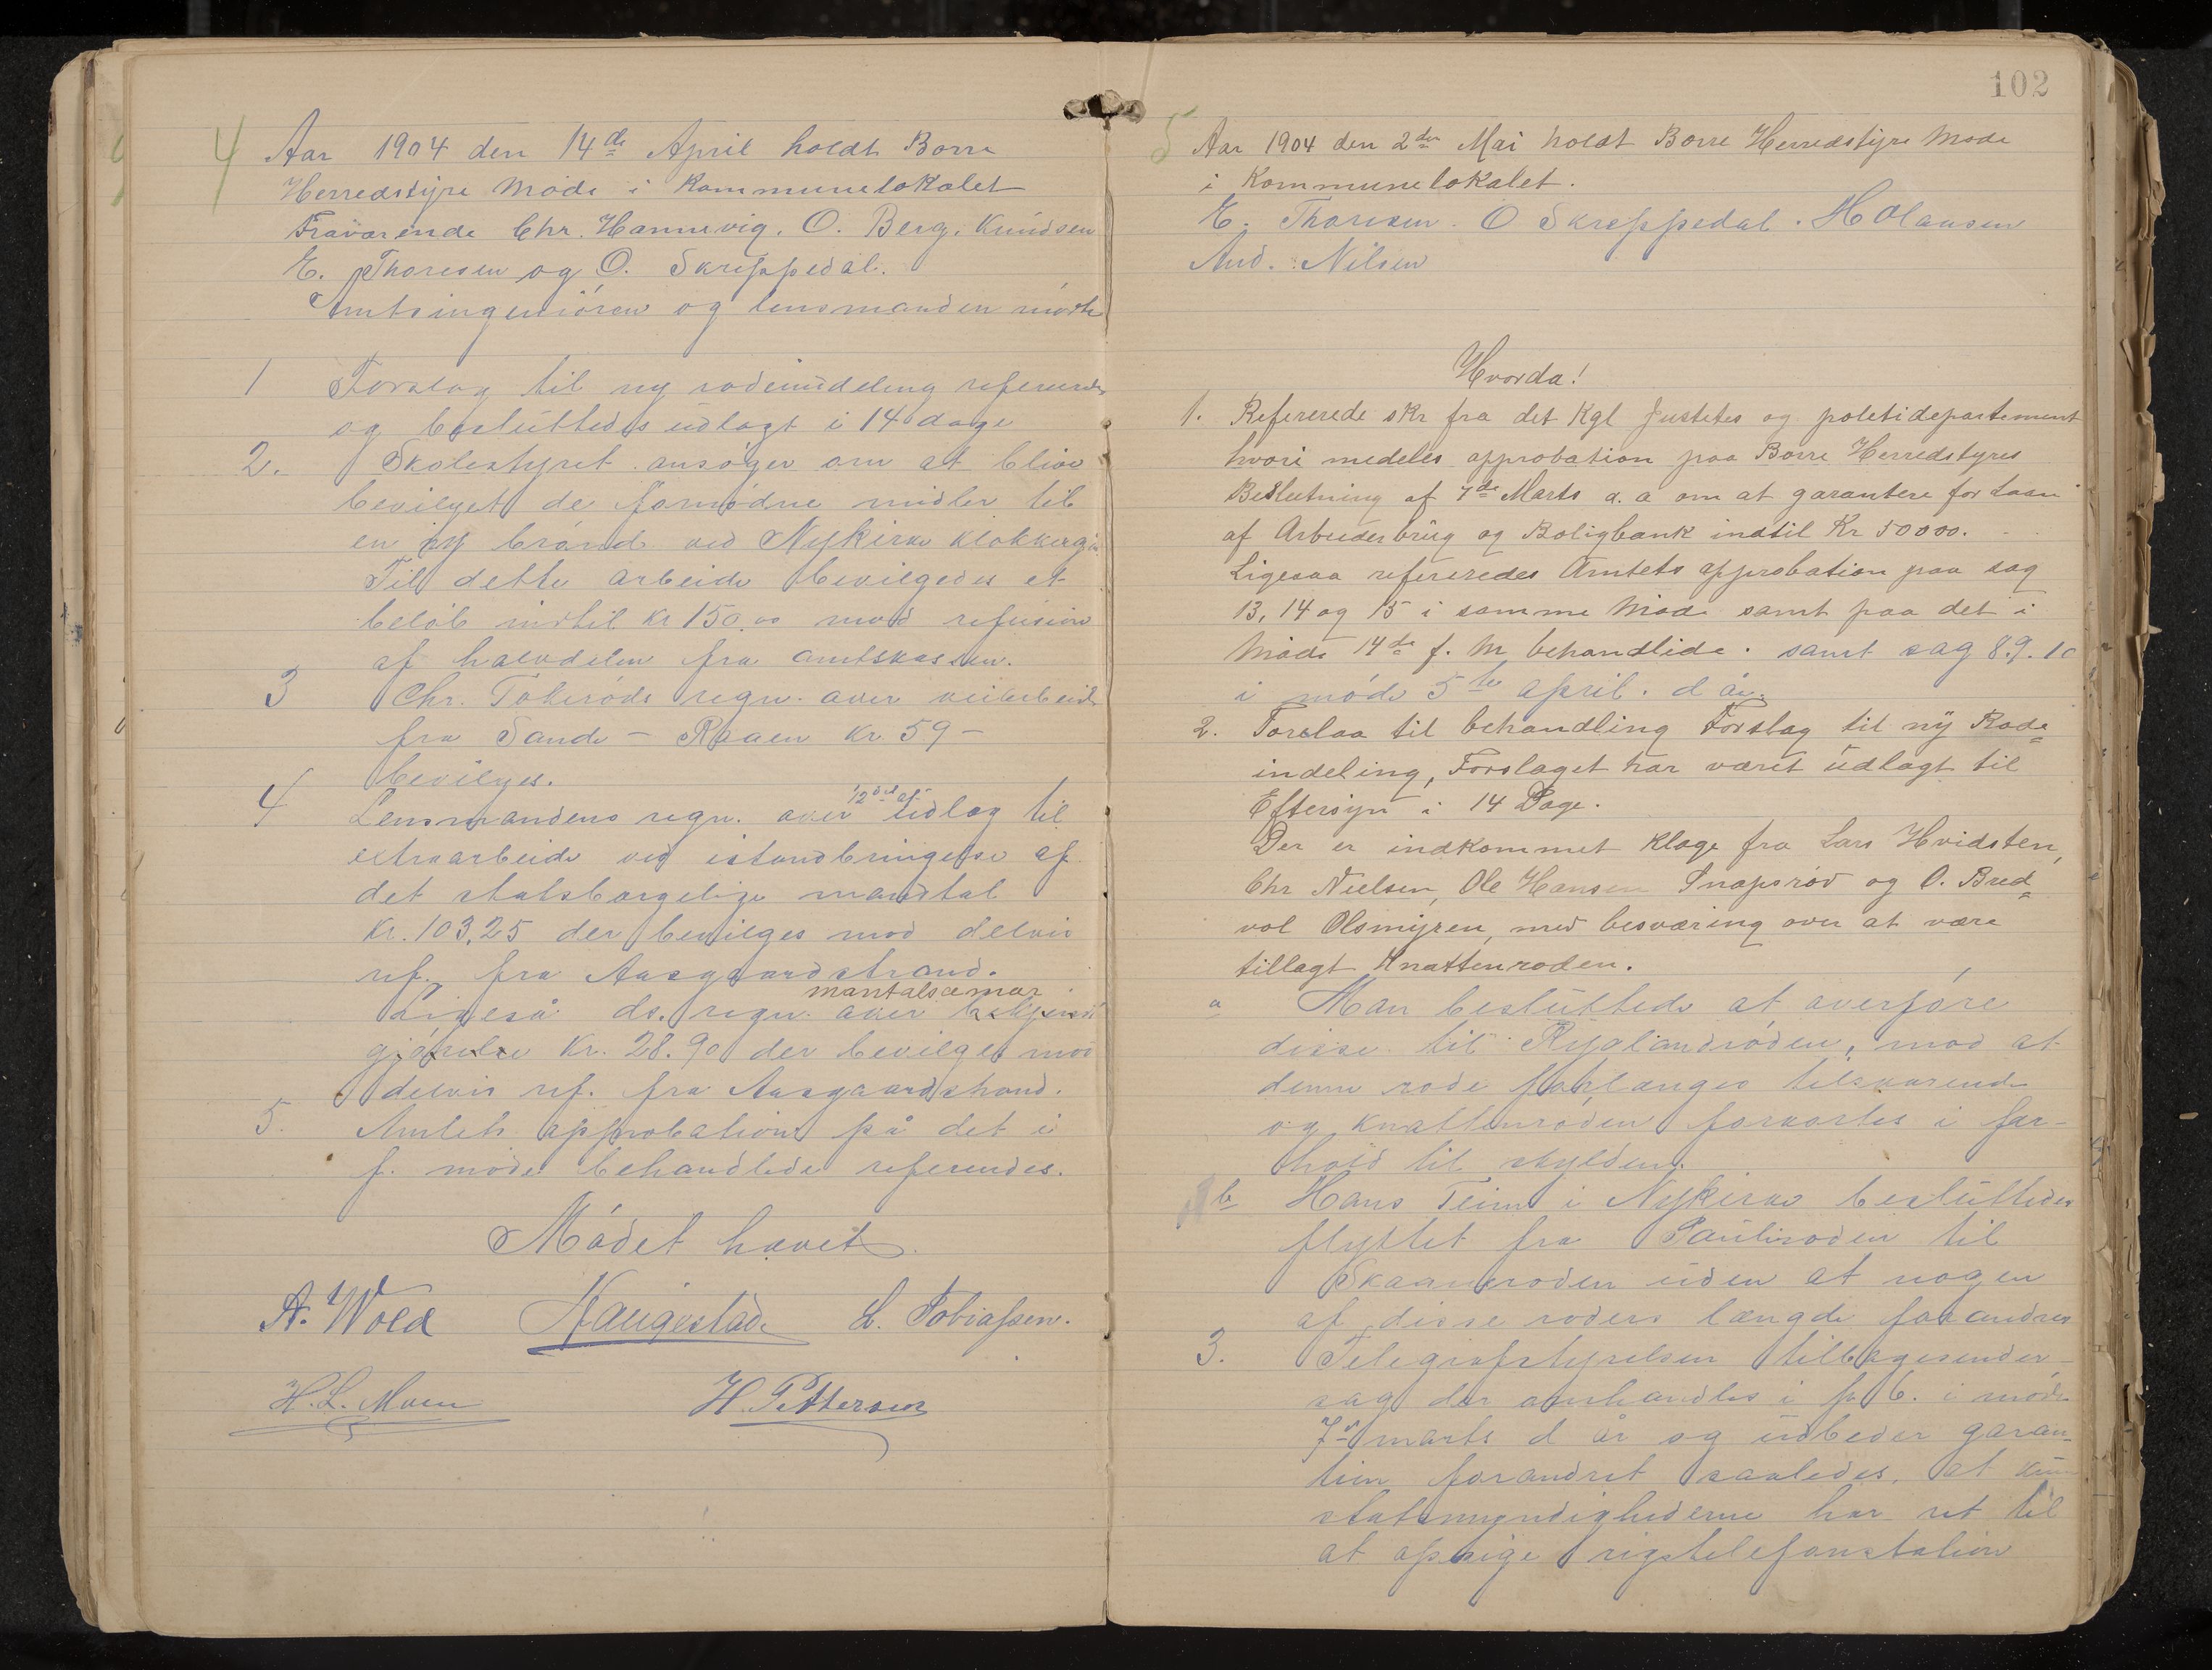 4 Aar 1904 den 14de April holdt Borre
Herredstyre Møde i Kommunelokalet
Fraværende Chr. Hannevig. O. Berg. Knudsen
E. Thoresen og O. Skreppedal.
Amtsingeniøren og lensmanden mødte
1 Forslag til ny rodeinddeling refereredes
og besluttedes udlagt i 14 dage
2. Skolestyret ansøger om at blive
bevilget de fornødne midler til
en ny brønd ved Nykirke klokkerg
Til dette arbeide bevilgedes et
beløb indtil Kr 150,00 mod refusion
af halvdelen fra amtskassen.
3 Chr. Tokerøds regn. over veiarbeide
fra Sande – Raaen Kr. 59 –
bevilges.
4 Lensmandens regn. over 1/2 del af udlæg til
extraarbeide ved istandbringelse af
det statsborgelige mandtal
Kr. 103,25 der bevilges mod delvis
ref. fra Aasgaardstrand.
mantalsamar
Ligeså ds. regn. over bekjendt
gjørelse Kr. 28.90 der bevilges mod
delvis ref. fra Aasgaardstrand.
5. Amtets approbation på det i
f. møde behandlede refereredes.
Mødet hævet.
A. Wold Haugestad L. Tobiassen.
H. L. Moen H. Pettersen
102
5 Aar 1904 den 2den Mai holdt Borre Herredstyre Møde
i Kommunelokalet.
E. Thoresen. O Skreppedal. H Olausen
And. Nilsen
Hvorda!
1. Refererede skr fra det Kgl Justets og poletidepartement
hvori medeles approbation paa Borre Herredstyres
Beslutning af 7de Marts d. a om at garantere for Laan
af Arbeiderbrug og Boligbank indtil Kr 50000.
Ligesaa refereredes Amtets approbation paa sag
13, 14 og 15 i samme Møde samt paa det i
Møde 14de f. M behandlede. samt sag 8. 9. 10
i møde 5te april. d år.
2. Forelaa til behandling Forslag til ny Rode=
indeling, Forslaget har været udlagt til
Eftersyn i 14 Dage.
Der er indkommet Klage fra Lars Hvidsten,
Chr Nielsen, Ole Hansen Snapsrød og O. Bred=
vol Olsmyren, med besværing over at være
tillagt Knattenroden.
a Man besluttede at overføre
disse til Ryglandrøden, mod at
denne rode forlænges tilsvarende
og Knattenroden forkortes i for-
hold til skylden.
b Hans Teim i Nykirke besluttedes
flyttet fra Pauliroden til
Skaaneroden uden at nogen
af disse roders længde forandres
3. Telegrafstyrelsen tilbagesender
sag der omhandles i p 6. i møde
7d marts d år og udbeder garan-
tien forandret saaledes, at kun
statsmyndighederne har ret til
at opsige rigstelefonstation